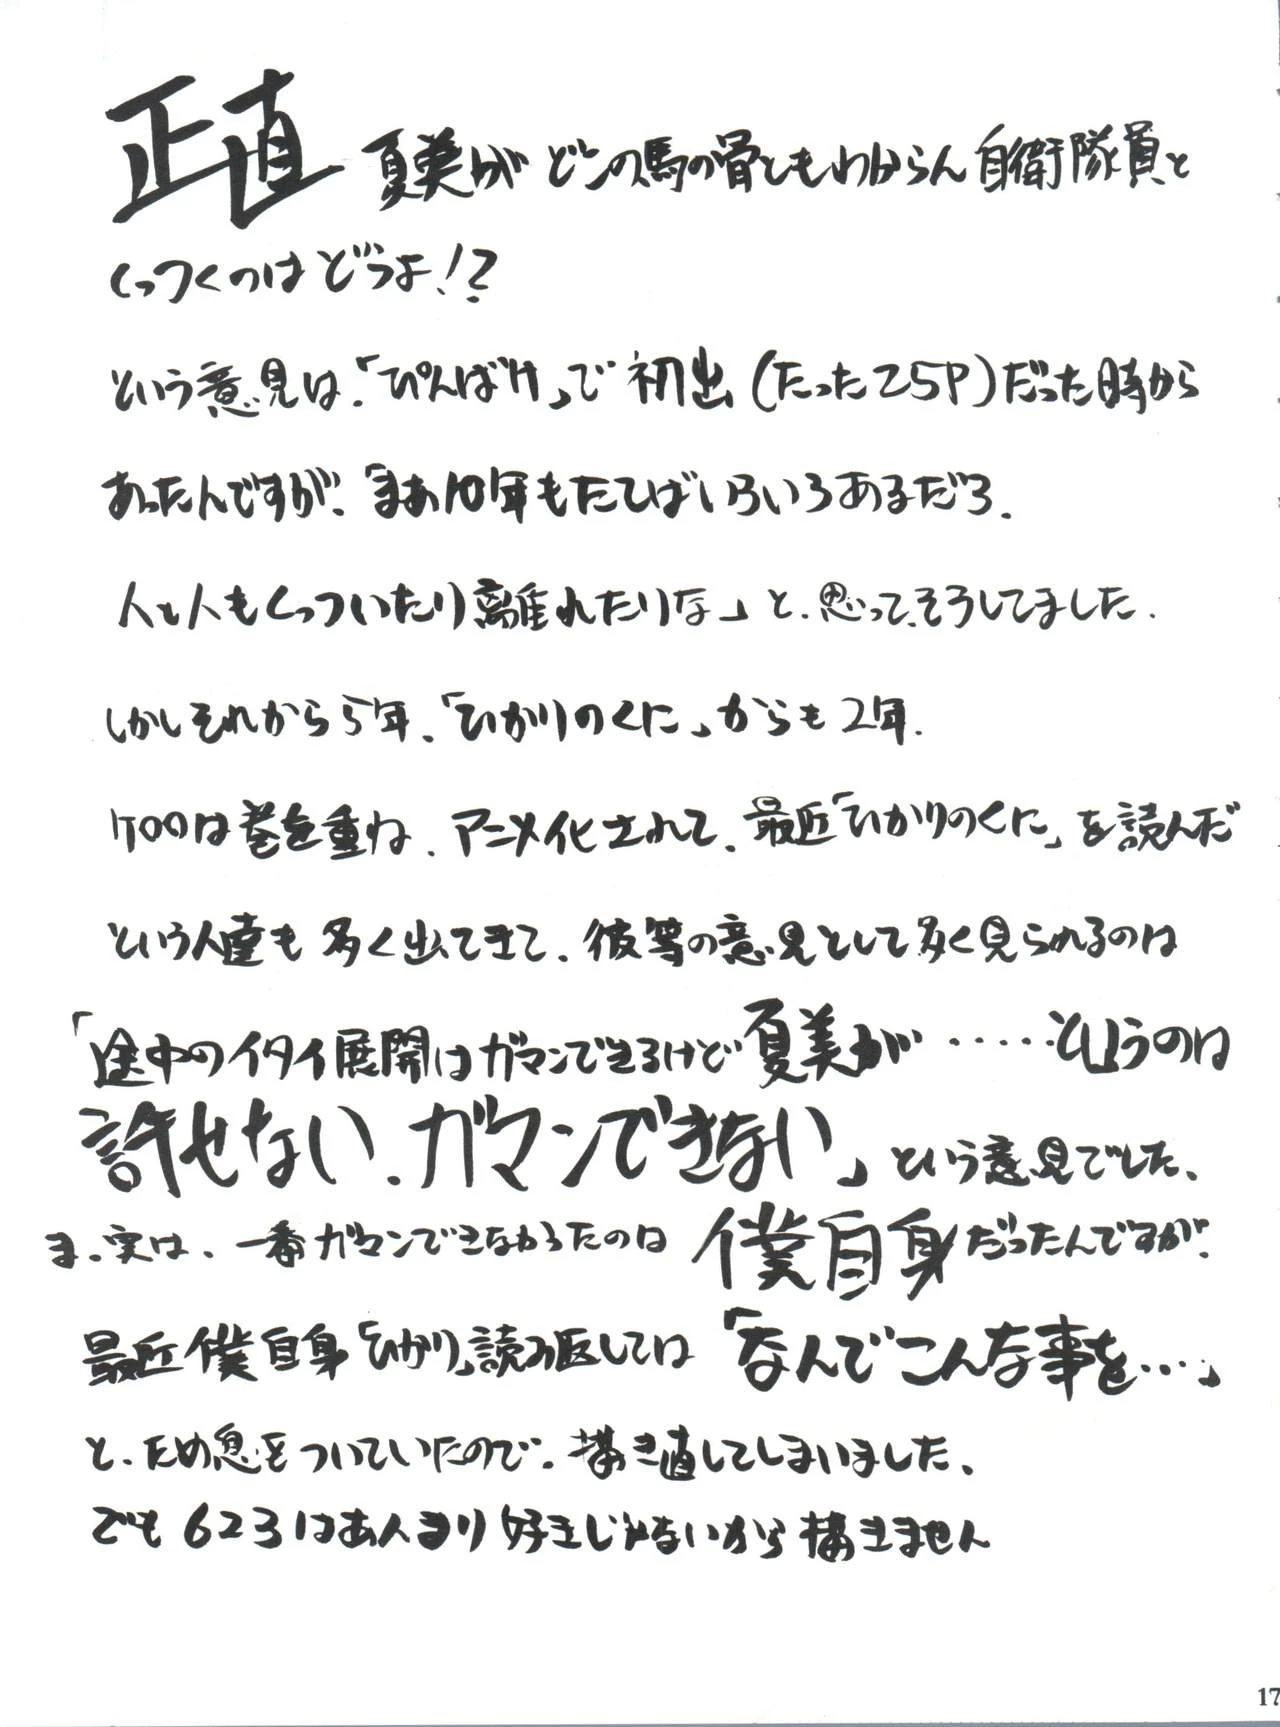 正直 夏美が どこの馬の骨ともわからん 自衛隊員と
くっつくのは どうよ!?
という意見は、「ぴんぱけ」で 初出 (たった25P)だった時から
あったんですが、「まあ10年もたてばいろいろあるだろ.
人と人もくっついたり離れたりな」と、思って、そうしてました.
しかしそれから5年、「ひかりのくに」からも2年.
ケロロは巻を重ね、アニメ化されて、最近「ひかりのくに」を読んだ
という人達も多く出てきて、彼等の意見として多く見られるのは
「途中のイタイ展開はガマンできるけど 夏美が ……というのは
許せない、ガマンできない」という意見でした、
ま、実は、一番ガマンできなかったのは 僕自身だったんですが、
最近 僕自身「ひかり」読み返しては「なんで こんな事を…」
と、ため息をついていたので、描き直してしまいました、
でも 623はあんまり好きじゃないから 描きません
17